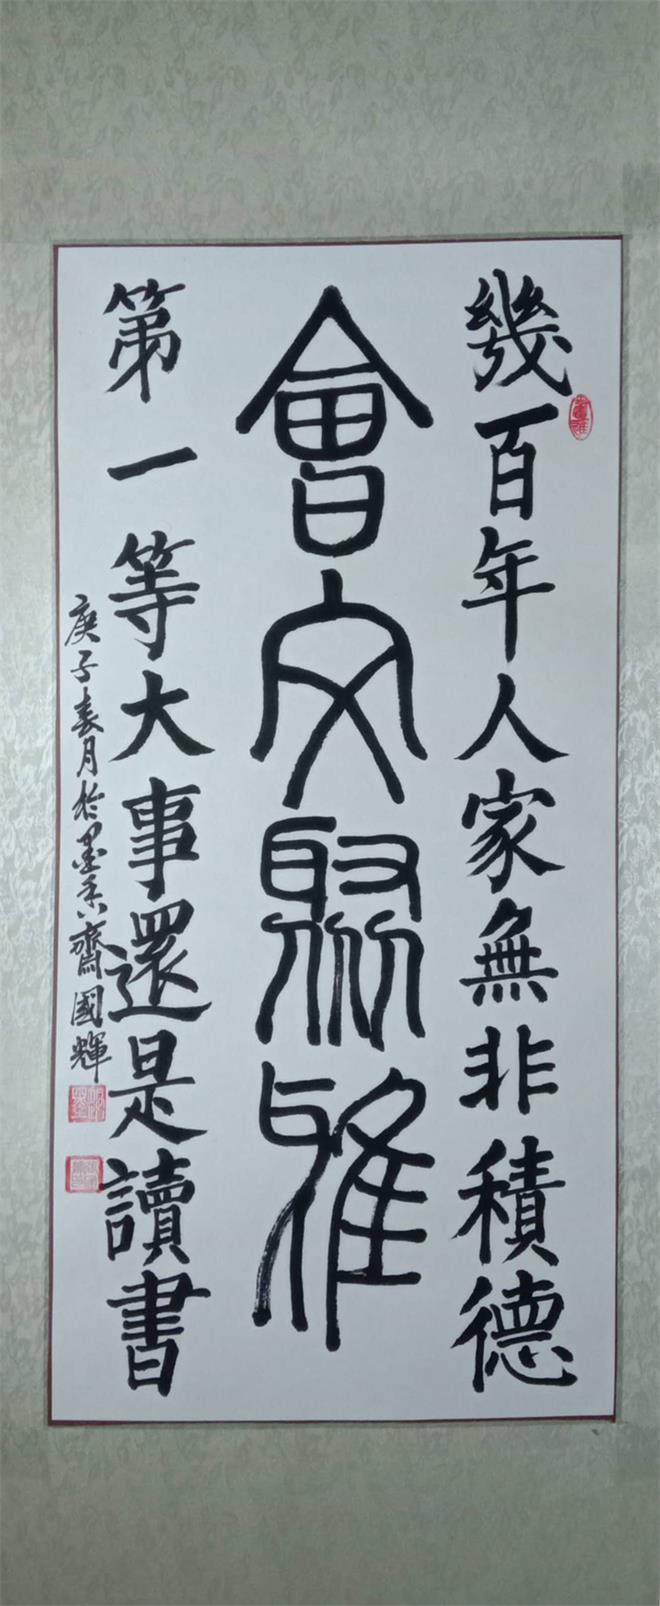 幾百年人家無非積德
會文聚雅
第一等大事還是讀書
庚子春月於墨香齋國輝